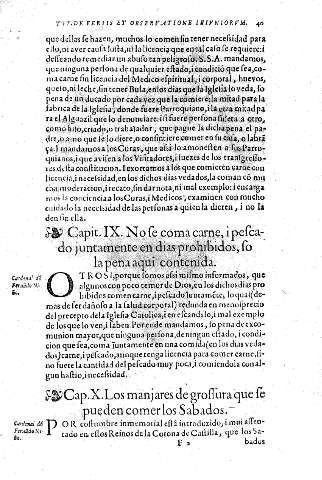 TIT. DE FERIIS ET OBSERVATIONE IEIVNIORVM. 40
que dellas se hazen, muchos lo comen sin tener necesidad para
ello, ni aver causa justa, ni la licencia que en tal caso se requiere: i
desseando remediar un abuso tan peligroso. S.S.A. mandamos,
que ninguna persona de qualquier estado, i condicio que sea, co-
ma carne sin licencia del Medico espiritual, i corporal, huevos,
queso, ni leche, sin tener Bula, en los dias que la Iglesia lo veda, so
pena de un ducado por cada vez que la comiere: la mitad para la
fabrica de la Iglesia, donde fuere Parroquiano, i la otra mitad pa-
ra el Alguazil que lo denunciare: i si fuere persona sujeta a otro,
como hijo, criado, o trabajador, que pague la dicha pena el pa-
dre, o amo que se lo diere, o consintiere comer en su casa, o labrã-
ça I mandamos a los Curas, que assi lo amonesten a sus Parro-
quianos, i que avisen a los Visitadores, i Juezes de los transgresso-
res desta constitucion. I exortamos a los que comieren carne con
licencia, i necesidad, en los dichos dias vedados, la coman cõ mu-
cha moderacion, i recato, sin dar nota, ni mal exemplo: i encarga-
mos la conciencia a los Curas, i Medicos, examinen con mucho
cuidado la necesidad de las personas a quien la dieren, i no la
den sin ella.
Capit. IX. No se coma carne, i pesca-
do juntamente en dias prohibidos, so
la pena aqui contenida.
Cardenal dõ
Fernãdo Ni-
ño.
OTROSI, porque somos assi mismo informados, que
algunos con poco temor de Dios, en los dichos dias pro-
hibidos comen carne, i pescado juntamẽte, lo qual (de-
mas de ser dañoso a la salud corporal) redunda en menosprecio
del precepto de la Iglesia Catolica, i en escandalo, i mal exemplo
de los que lo ven, i saben Por ende mandamos, so pena de exco-
munion mayor, que ninguna persona, de ningun estado, i condi-
cion que sea, coma juntamente en una comida en los dias veda-
dos, carne, i pescado, aunque tenga licencia para comer carne, si-
no fuere la cantidad del pescado muy poca, i comiendola con al-
gun hastio, i necesidad.
Cap. X. Los manjares de grossura que se
pueden comer los Sabados.
Cardenal dõ
Fernãdo Ni-
ño.
POR costumbre inmemorial està introduzido, i mui assen-
tado en estos Reinos de la Corona de Castilla, que los Sa-
F 2 bados